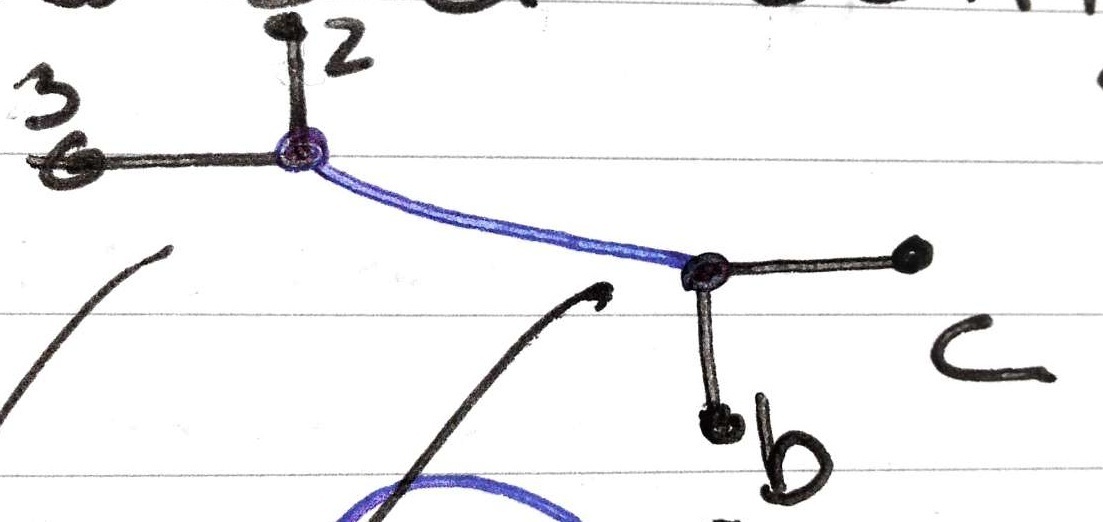 2
3
c
b